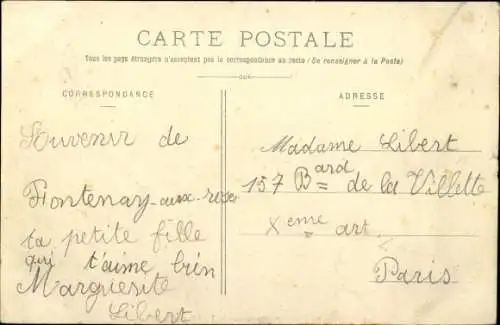 CARTE POSTALE
Tous les pays étrangers n'acceptent pas la correspondance au recto (Se renseigner à la Poste)
CORRESPONDANCE
Souvenir de
Fontenay-aux-roses
ta petite fille
qui t'aime bien
Marguerite
Libert
ADRESSE
Madame Libert
157 Bard de la Villette
Xeme art.
Paris